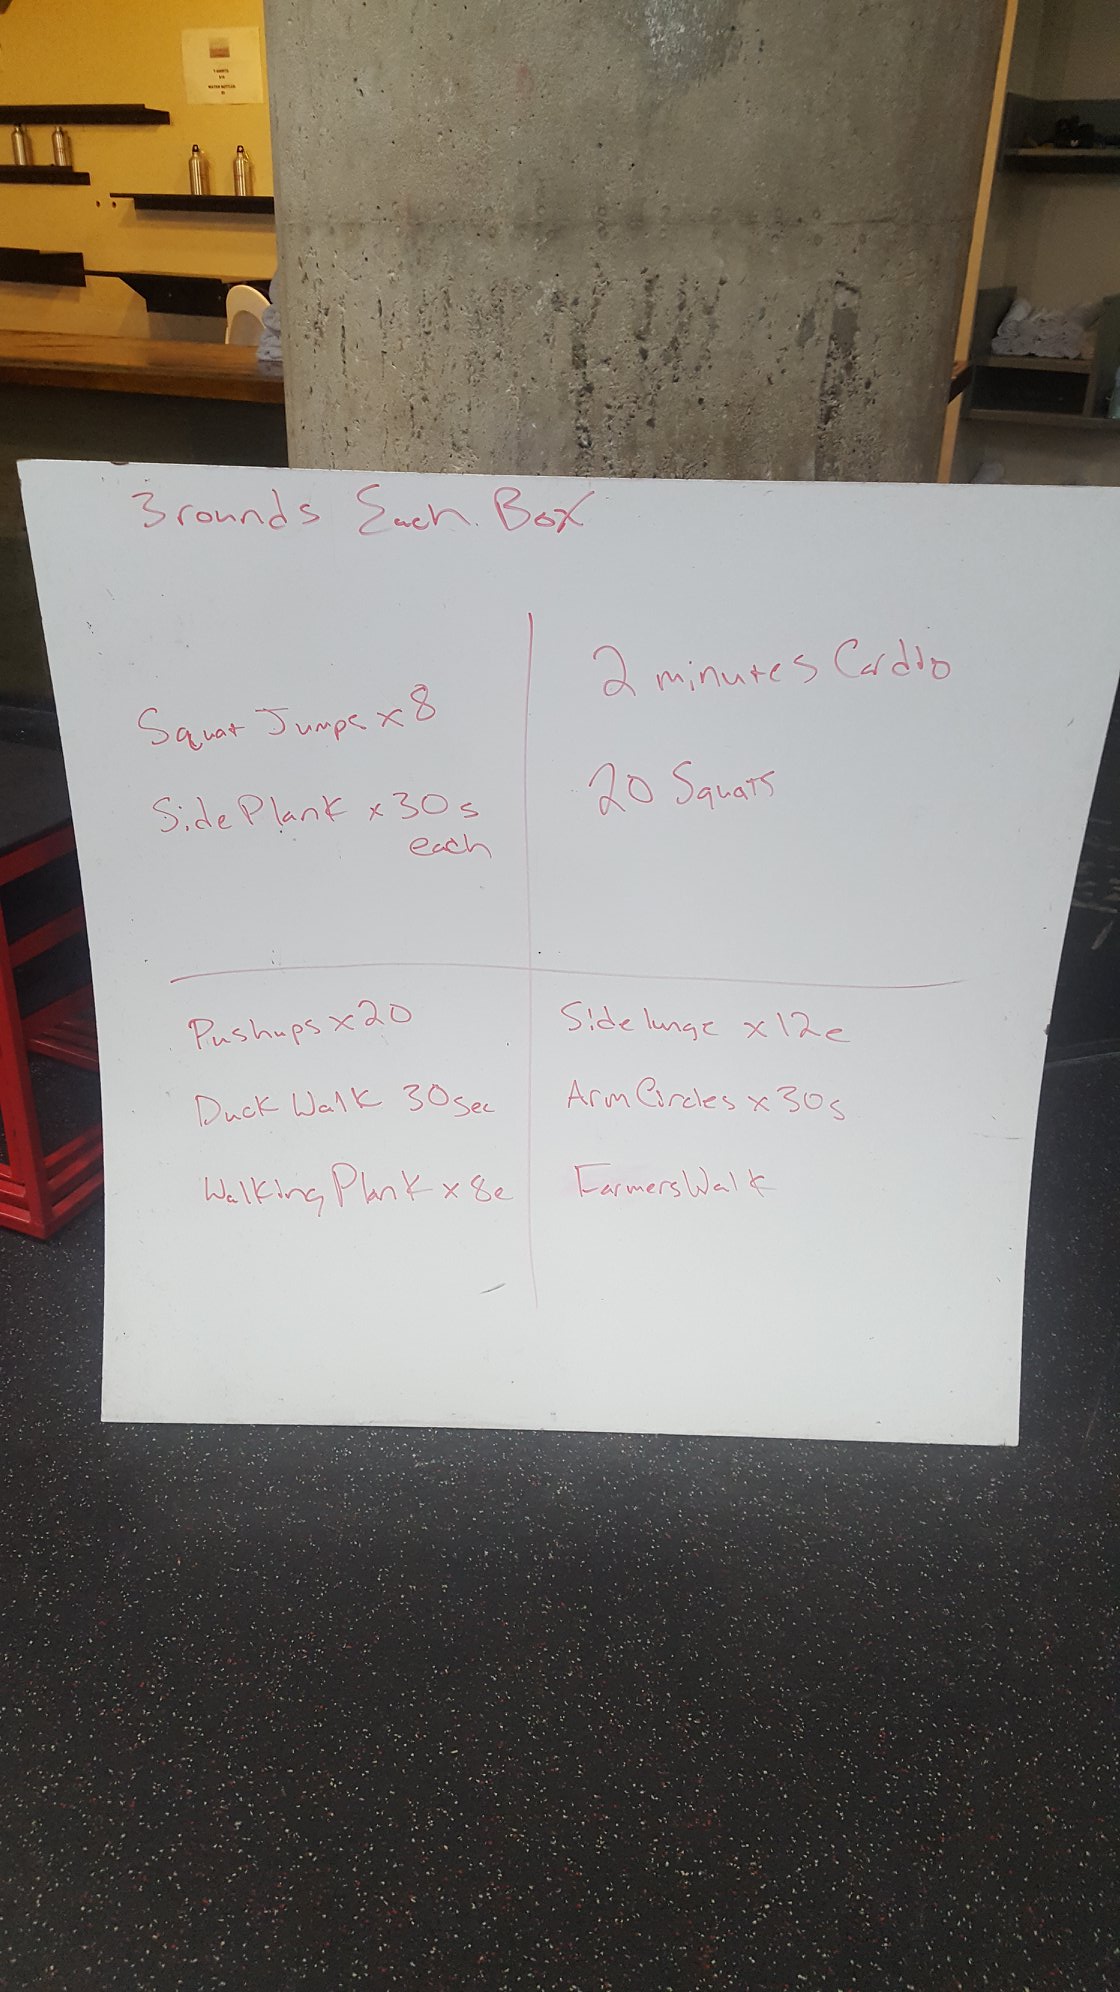 T-SHIRTS
WATER BOTTLES
3 rounds Each Box
Squat Jumps x 8
Side Plank x 30s
each
2 minutes Cardio
20 Squats
Pushups x 20
Duck Walk 30sec
Walking Plank x 8e
Side lunge x 12e
Arm Circles x 30s
Farmers Walk